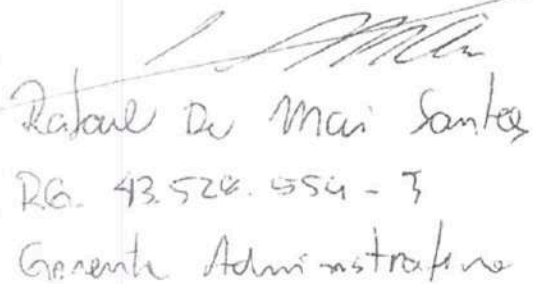 Rafael De Mai Santos
RG. 43.524.554-3
Gerente Administrativo